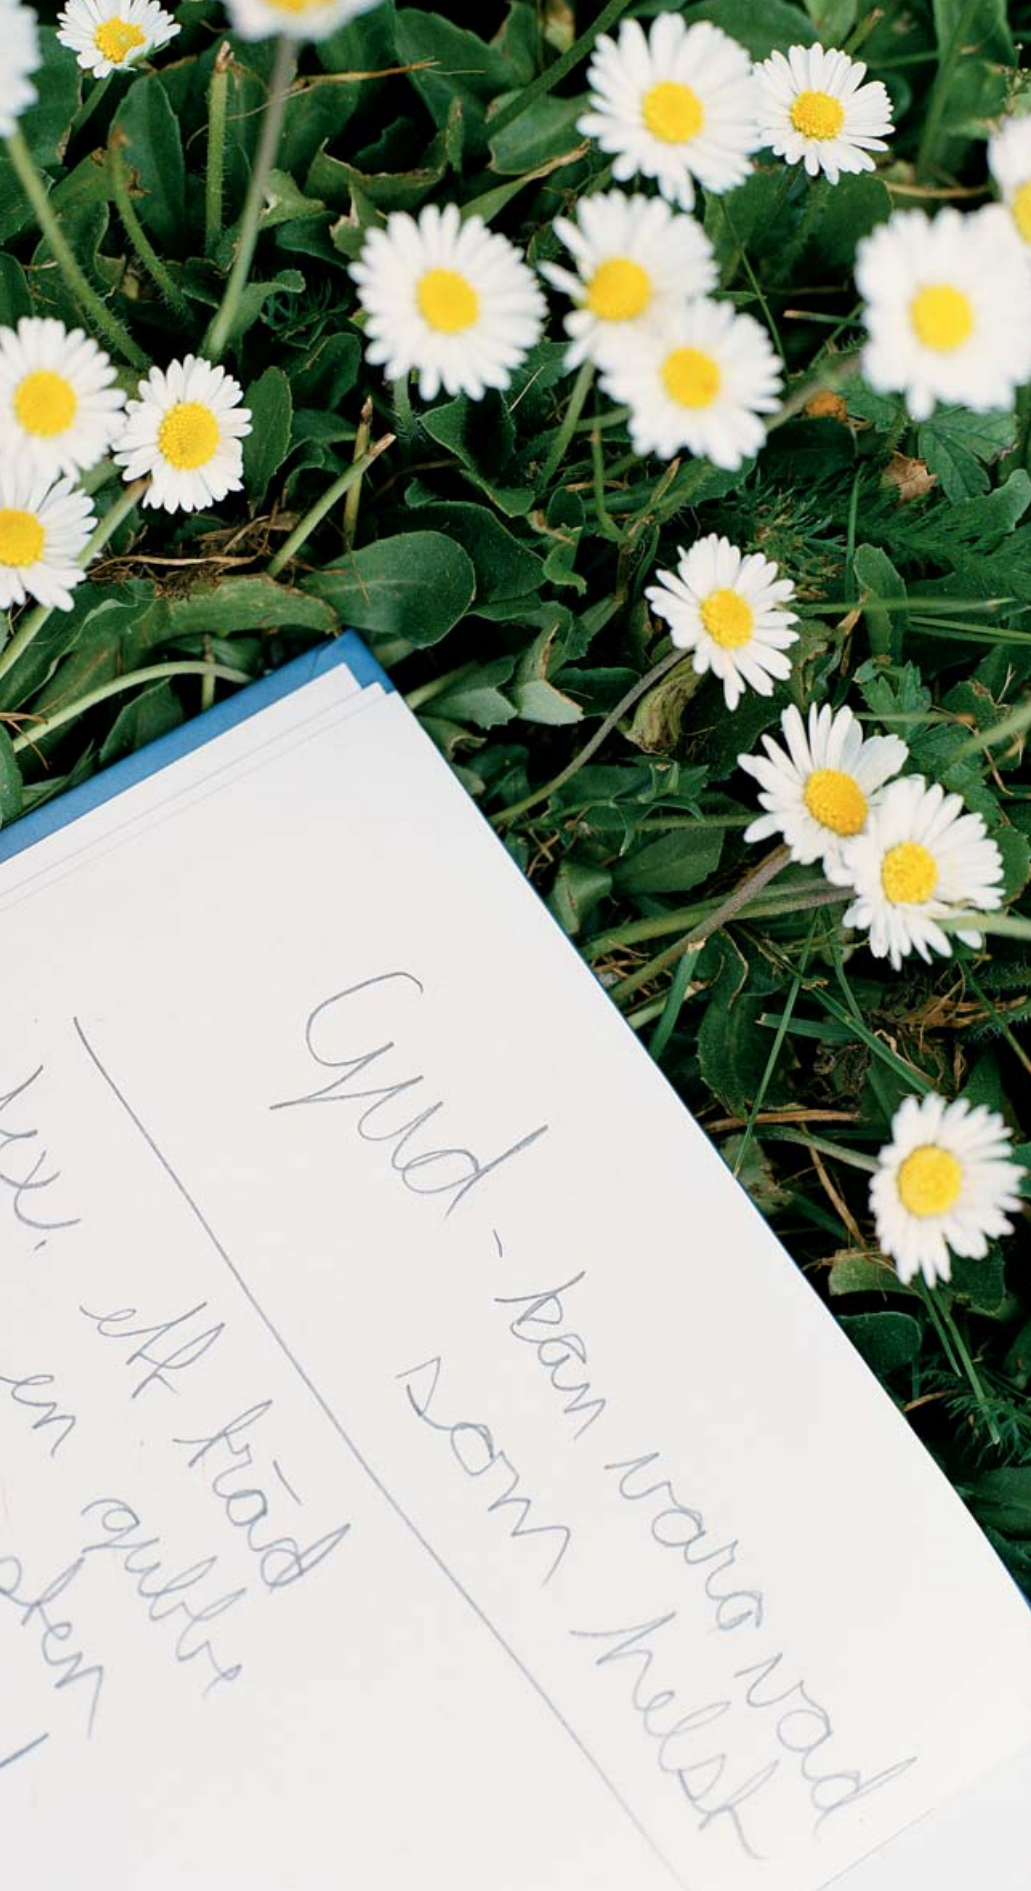 Gud - kan vara vad
som helst
tex. ett träd
en gubbe